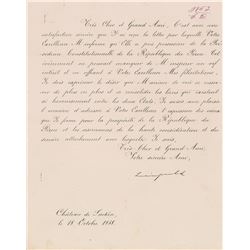 Très Cher et Grand Ami, C'est avec
satisfaction sincère que J'ai reçu la lettre par laquelle Votre
Excellence M'informe qu'Elle a pris possession de la Pré-
sidence Constitutionnelle de la République du Pérou. Cet
événement ne pouvait manquer de M'inspirer un vif
intérêt et en offrant à Votre Excellence Mes félicitations,
Je
de plus en plus et à consolider les liens qui existent
si heureusement entre les deux Etats. Je saisis avec plaisir
l'occasion d'adresser à Votre Excellence l'expression des vœux
que Je forme pour la prospérité de la République du
Pérou et les assurances de la haute considération et des
sincère attachement avec lesquels Je suis
Très Cher et Grand Ami,
Votre sincère Ami,
Château de Laeken,
le 18 Octobre